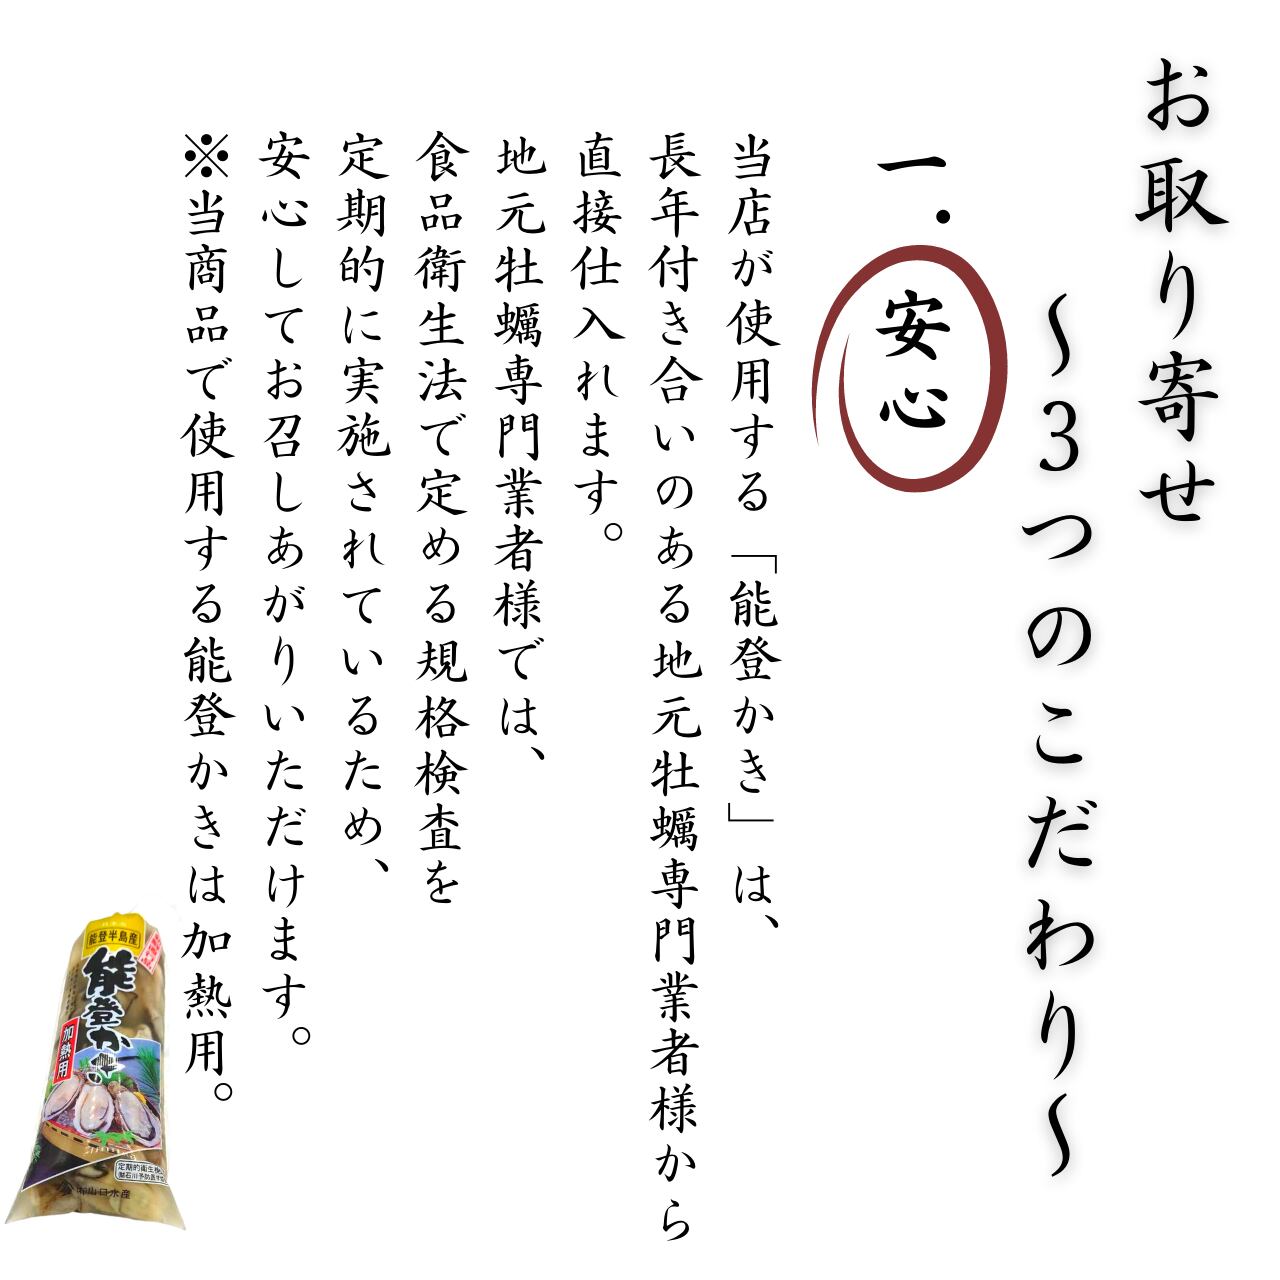 お取り寄せ
〜3つのこだわり〜
一．安心
当店が使用する「能登かき」は、
長年付き合いのある地元牡蠣専門業者様から
直接仕入れます。
地元牡蠣専門業者様では、
食品衛生法で定める規格検査を
定期的に実施されているため、
安心してお召しあがりいただけます。
※当商品で使用する能登かきは加熱用。
能登半島産
能登かき
加熱用
定期的衛生検
㈲山口水産